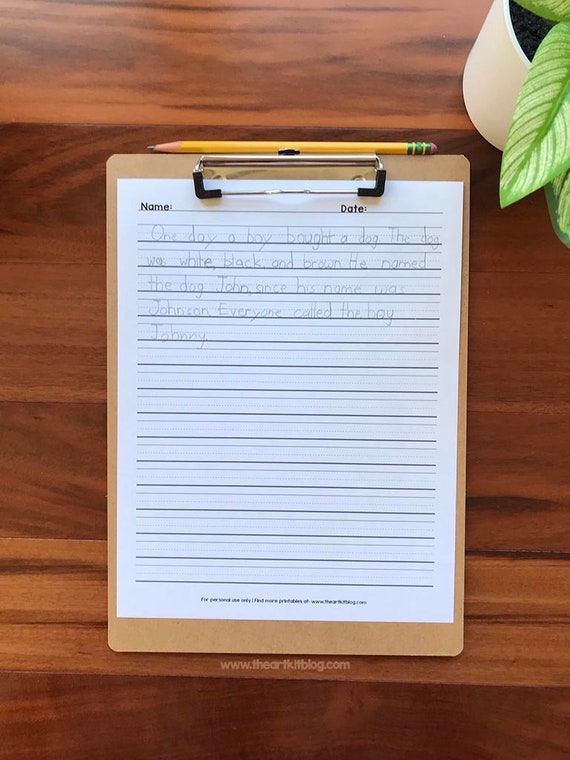 Name: Date:
One day a boy bought a dog. The dog
was white, black, and brown. He named
the dog John, since his name was
Johnson. Everyone called the boy
Johnny.
For personal use only | Find more printables at: www.theartkitblog.com
www.theartkitblog.com